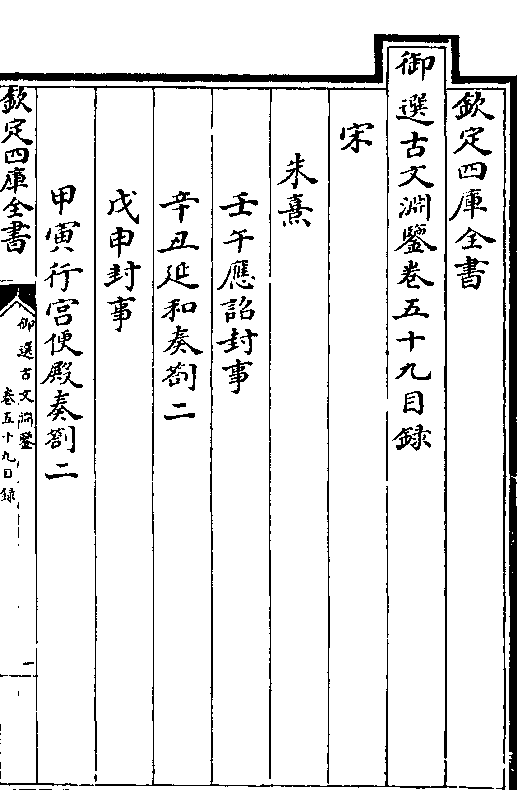 欽定四庫全書
御選古文淵鑒卷五十九目録
宋
朱熹
壬午應詔封事
辛丑延和奏劄二
戊申封事
甲寅行宫便殿奏劄二
欽定四庫全書
御選古文淵鑒
卷五十九目録
一